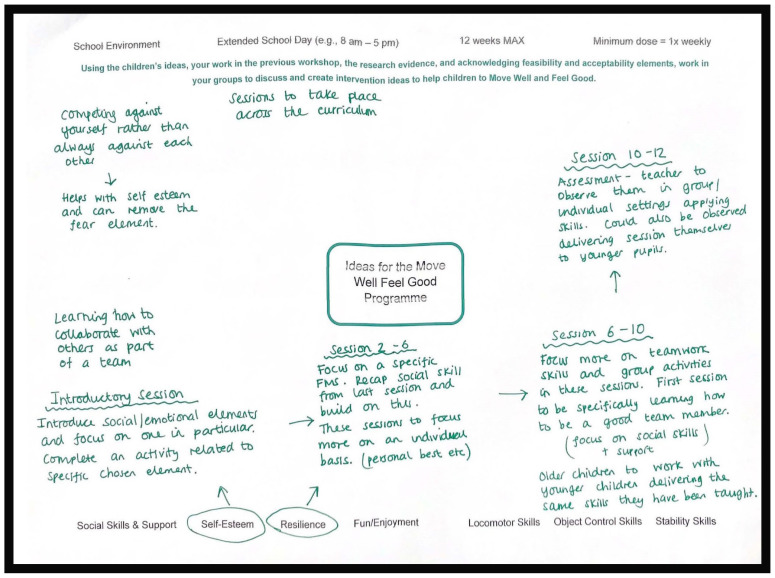 School Environment
Extended School Day (e.g., 8 am – 5 pm)
12 weeks MAX
Minimum dose = 1x weekly
Using the children's ideas, your work in the previous workshop, the research evidence, and acknowledging feasibility and acceptability elements, work in
your groups to discuss and create intervention ideas to help children to Move Well and Feel Good.
Competing against
yourself rather than
always against each
other
↓
Helps with self esteem
and can remove the
fear element.
Sessions to take place
across the curriculum
Session 10-12
Assessment - teacher to
observe them in group/
individual settings applying
skills. Could also be observed
delivering session themselves
to younger pupils.
Ideas for the Move
Well Feel Good
Programme
Learning how to
collaborate with
others as part
of a team
Introductory Session
Introduce social/emotional elements
and focus on one in particular.
Complete an activity related to
specific chosen element.
Session 2-6
Focus on a specific
FMS. Recap social skill
from last session and
build on this.
These sessions to focus
more on an individual
basis. (personal best etc)
Session 6-10
Focus more on teamwork
skills and group activities
in these session. First session
to be specifically learning how
to be a good team member.
(focus on social skills
+ support)
Older children to work with
younger children delivering the
same skills they have been taught.
Social Skills & Support
Self-Esteem
Resilience
Fun/Enjoyment
Locomotor Skills
Object Control Skills
Stability Skills